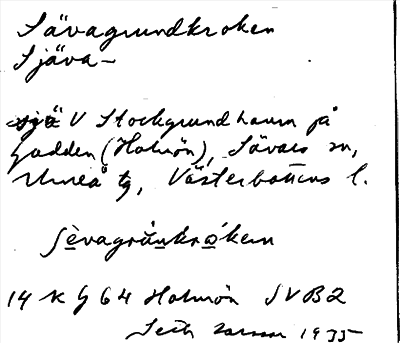 Sävagrundkroken
Sjäva-
V Stockgrundhamn på
Gadden (Holmön), Sävars sn,
Umeå tg, Västerbottens l.
Sèvagrún̲kro̲ken
14 K g 64 Holmön SVB2
1935